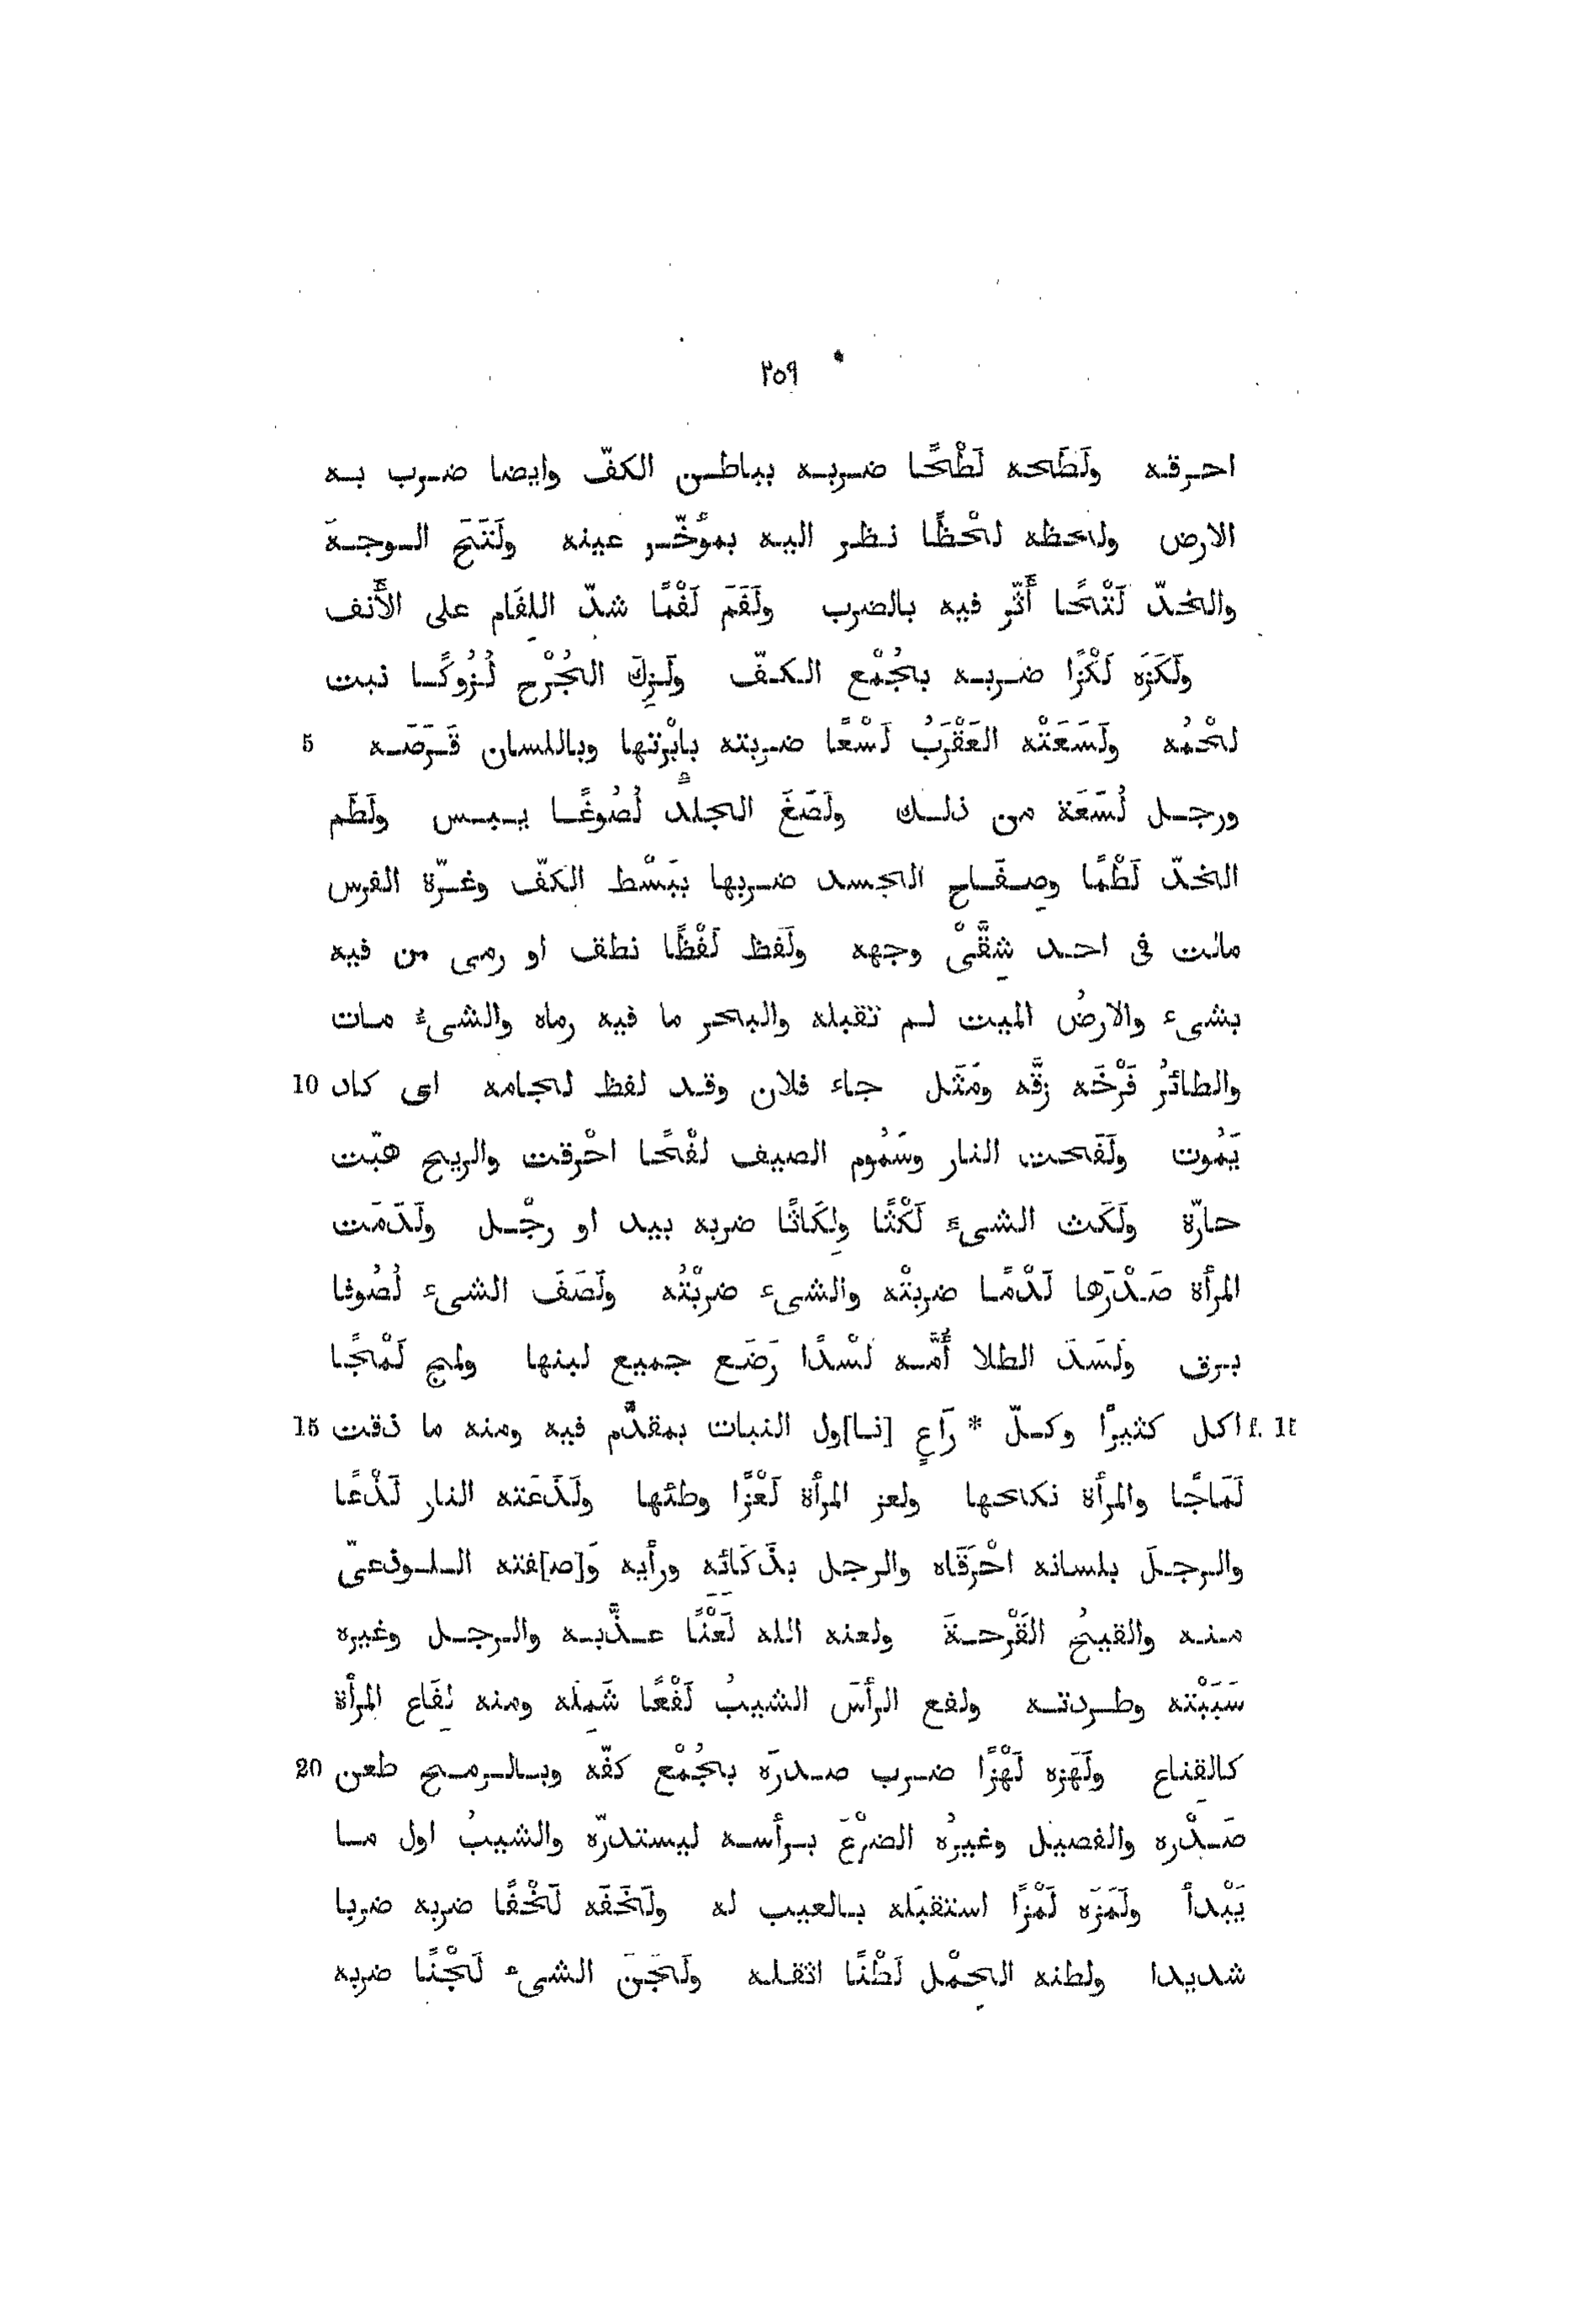 ٢٥٩
احرقه ولَطَحه لَطْحًا ضربه بباطن الكفّ وايضا ضرب به
الارض ولحظه لحْظًا نظر اليه بمؤُخّر عينه ولَتَحَ الوجهَ
والخدّ لَتْحًا أَثّر فيه بالضرب ولَفَمَ لَفْمًا شدّ اللِفَام على الأَنف
ولَكَزَه لَكْزًا ضربه بجُمْع الكفّ ولَزِكَ الجُرْح لُزُوكًا نبت
لحْمُه ولَسَعَتْه العَقْرَبُ لَسْعًا ضربته بابْرتها وباللسان قَرَصَه 5
ورجل لُسَعَة من ذلك ولَصَغَ الجلدُ لُصُوغًا يبس ولَطَم
الخدّ لَطْمًا وصِفَاح الجسد ضربها ببَسْط الكفّ وغرّة الفرس
مالت فى احد شِقَّىْ وجهه ولَفظ لَفْظًا نطق او رمى من فيه
بشىء والارضُ الميت لم تقبله والبحر ما فيه رماه والشىءُ مات
والطائرُ فَرْخَه زقَّه ومَثَل جاء فلان وقد لفظ لجامه اى كاد 10
يَمُوت ولَفَحت النار وسَمُوم الصيف لفْحًا احْرقت والريح هبّت
حارّة ولَكَث الشىءَ لَكْثًا ولِكَاثًا ضربه بيد او رجْل ولَدَمَت
المرأة صَدْرَها لَدْمًا ضربتْه والشىء ضربْتُه ولَصَفَ الشىء لُصُوفا
برق ولَسَدَ الطلا أُمَّه لسْدًا رَضَع جميع لبنها ولمج لَمْجًا
f. 11 اكل كثيرًا وكلّ * رَاعٍ [نا]ول النبات بمقدَّم فيه ومنه ما ذقت 15
لَمَاجًا والمرأة نكاحها ولعز المرأة لَعْزًا وطئها ولَذَعَته النار لَذْعًا
والرجلَ بلسانه احْرَقَاه والرجل بذَكَائه ورأيه وَ[ص]فته اللوذعىّ
منه والقيحُ القَرْحةَ ولعنه الله لَعْنًا عذَّبه والرجل وغيره
سَبَبْته وطردته ولفع الرأسَ الشيبُ لَفْعًا شَمِله ومنه لِفَاع المرأة
كالقِناع ولَهَزه لَهْزًا ضرب صدرَه بجُمْع كفّه وبالرمح طعن 20
صَدْره والفصيل وغيرُه الضرْعَ برأسه ليستدرّه والشيبُ اول ما
يَبْدأ ولَمَزَه لَمْزًا استقبَله بالعيب له ولَخَفَه لَخْفًا ضربه ضربا
شديدا ولطنه الحِمْل لَطْنًا اثقله ولَجَنَ الشىء لَجْنًا ضربه